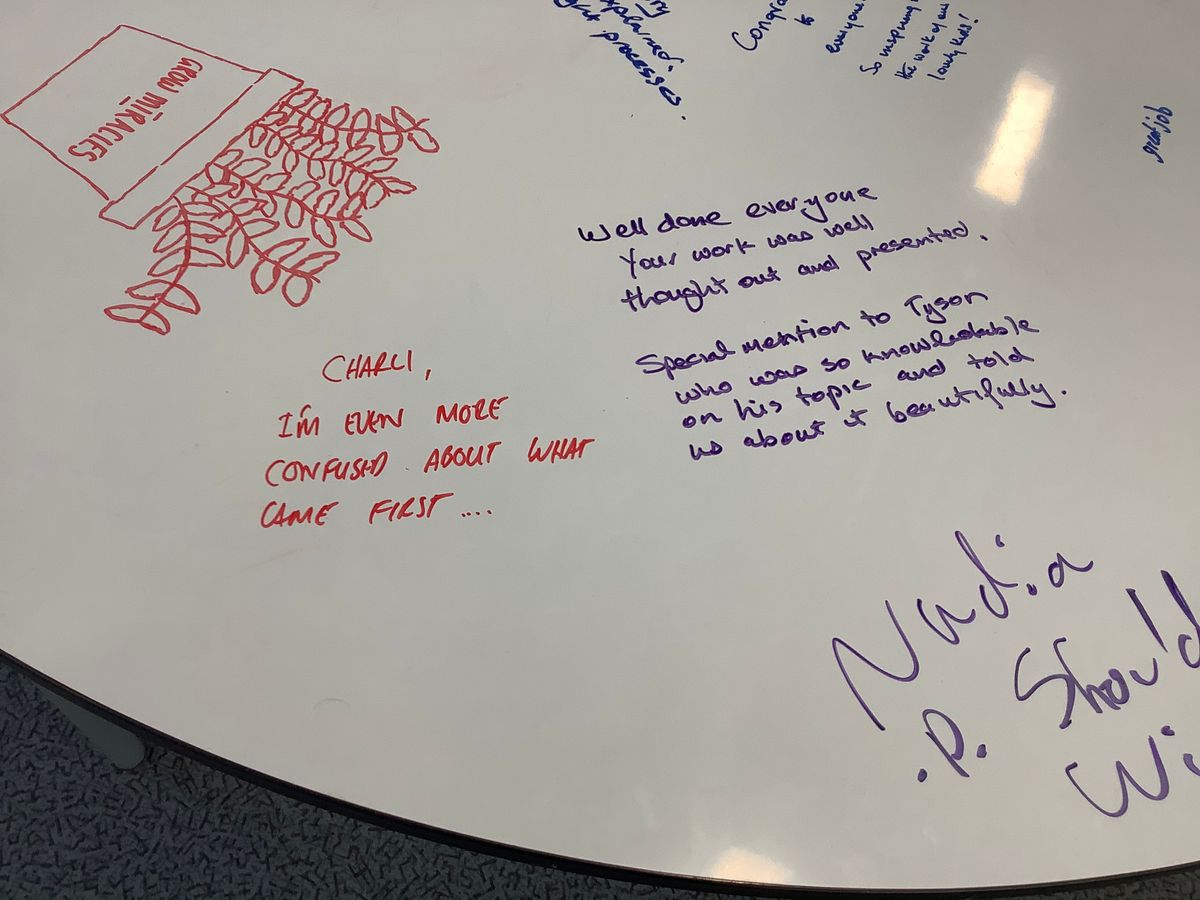 GROW MIRACLES
explained.
processes.
to
everyone.
So inspiring
the work of our
lovely kids!
great job
Well done everyone
Your work was well
thought out and presented.
Special mention to Tyson
who was so knowledable
on his topic and told
us about it beautifully.
CHARLI,
I'M EVEN MORE
CONFUSED ABOUT WHAT
CAME FIRST ....
Nadia
.P. Should